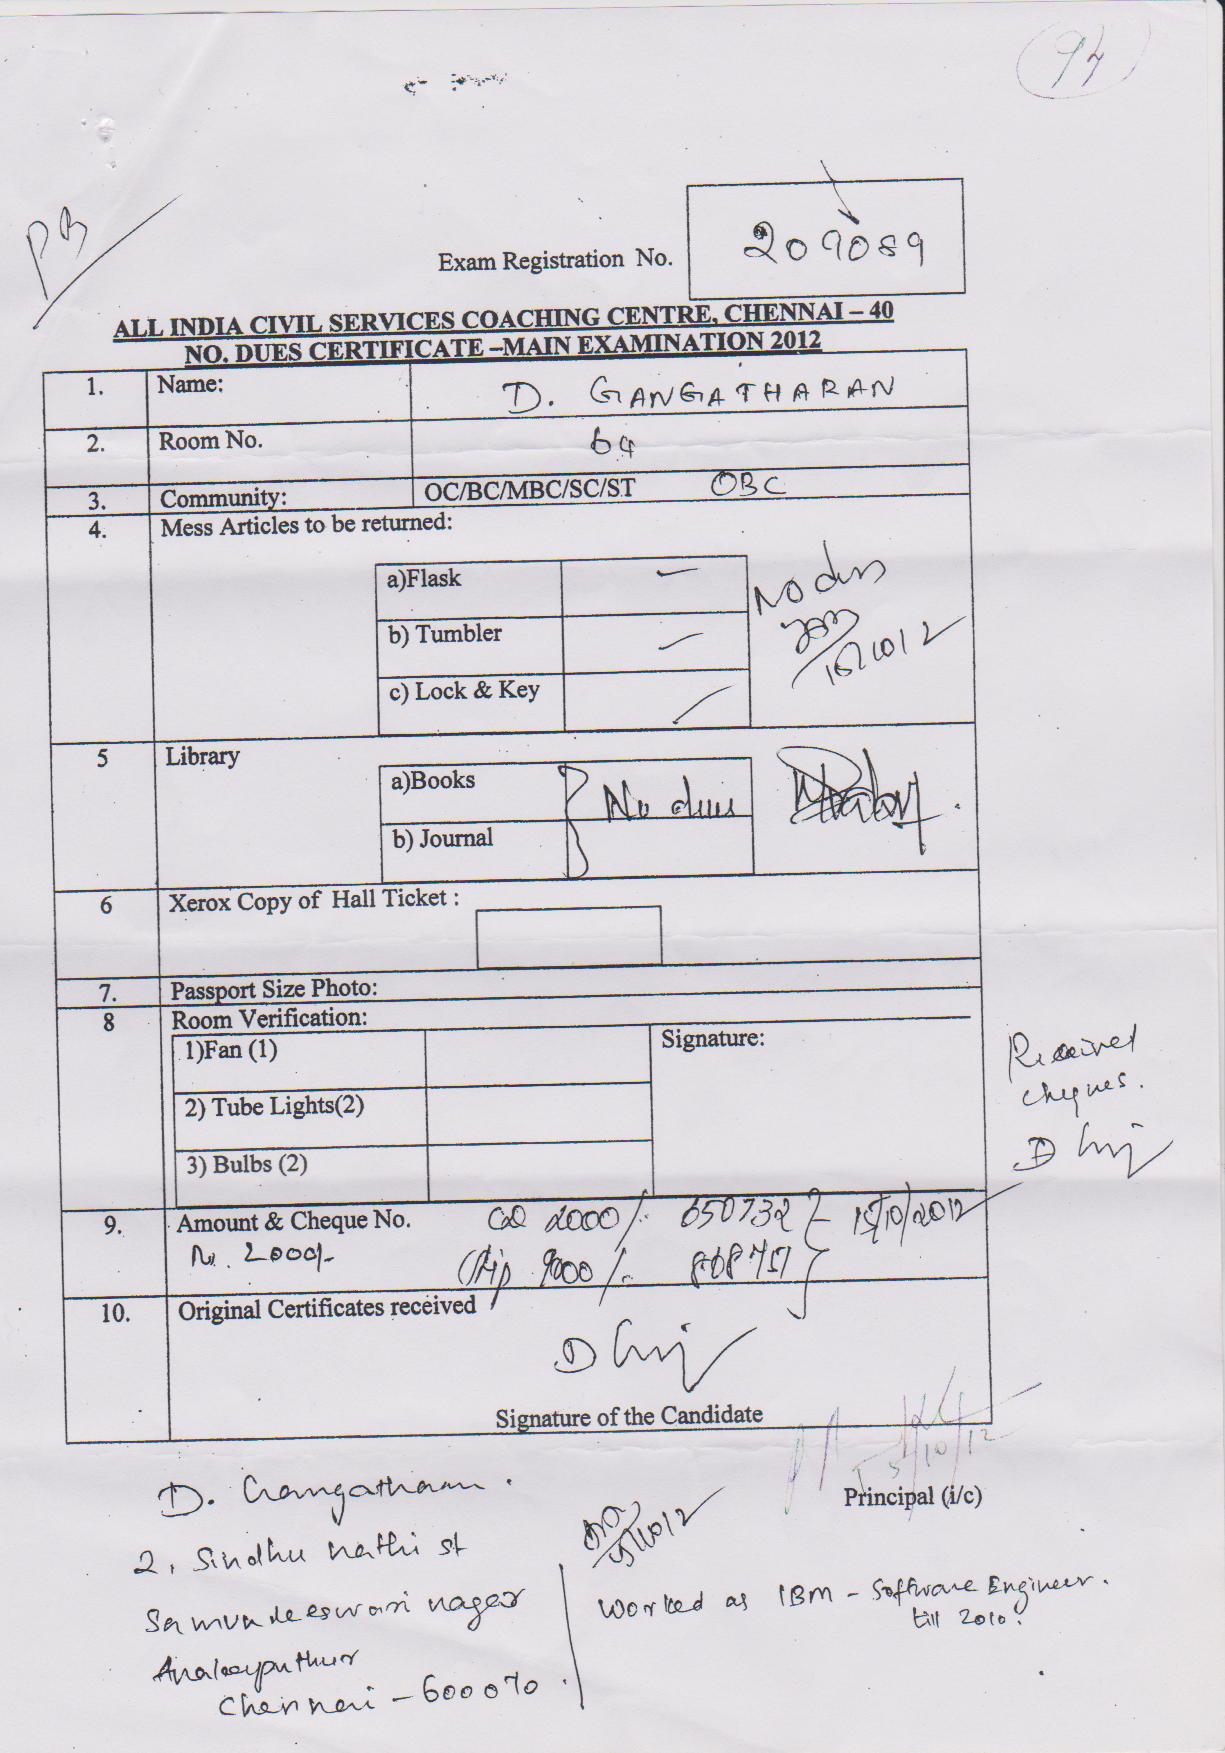 94
PB
Exam Registration No. 209089
ALL INDIA CIVIL SERVICES COACHING CENTRE, CHENNAI – 40
NO. DUES CERTIFICATE –MAIN EXAMINATION 2012
1. Name: D. GANGATHARAN
2. Room No. 64
3. Community: OC/BC/MBC/SC/ST OBC
4. Mess Articles to be returned:
a)Flask
b) Tumbler
c) Lock & Key
No dues
15/10/12
5 Library
a)Books
b) Journal
No dues
6 Xerox Copy of Hall Ticket :
7. Passport Size Photo:
8 Room Verification:
1)Fan (1)
2) Tube Lights(2)
3) Bulbs (2)
Signature:
Received
cheques.
9. Amount & Cheque No. CD 2000/- 650732 15/10/2012
Rs. 2000/- 9000/- 868751
10. Original Certificates received
Signature of the Candidate
15/10/12
Principal (i/c)
D. Gangatharan.
2, Sindhu nathi st
nagar
Chennai – 600070.
15/10/12
Worked as IBM – Software Engineer.
till 2010.